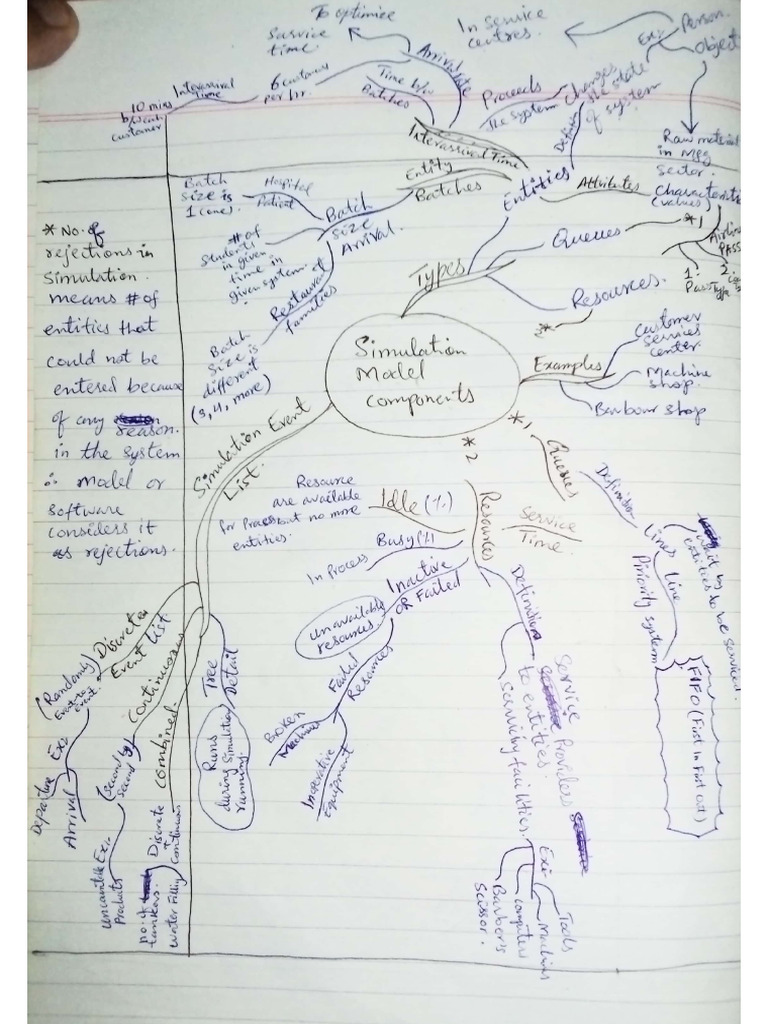 To optimize
service
time.
In service
centres.
Ex:-
Person.
Object
Arrival rate
Interarrival
Time
6 customers
per hr.
10 mins
b/w each
customer
Time b/w
Batches
Proceeds
the system
changes
the state
of system
Definition
Interarrival Time
Raw material
in Mfg
Sector.
Entity
Batches
Entities
Attributes
Characteristi
(values)
Batch
Size is
1 (one).
Hospital
Patient
Batch
Size
Arrival.
# of
Students
in given
time in
given system.
Restaurant
families
Batch
Size is
different
(3,4, more)
Queues
*1
Airline
PASS
1:
Pass Type
2
Types
Resources.
*2
* No. of
rejections in
Simulation.
means # of
entities that
could not be
entered because
of any
reason.
in the system
∴ model or
software
considers it
as rejections.
Simulation
Model
Components
Examples
Customer
Services
center.
Machine
shop.
Barbour shop
Simulation Event
List.
*1
Queues
Definition
Lines
wait by
entities to be serviced.
Line
Piriority system
FIFO (First in First Out)
*2
Resources
Service
Time.
Idle (%)
Resource
are available
for Process but no more
entities.
Busy (%)
In Process
Inactive
OR Failed
unavailable
resources.
Failed
Resources
Broken
Machine
Inoperative
Equipment
Definition
Service Provides
to entities.
Serviceby facilities.
Ex:-
Tools
Machines
Computers
Barbers
Scissor.
Discrete
Event List
(Randomly)
Event to Event.
Ex:
Departure
Arrival
Continuous
(second by
second)
Ex:-
Uncountable
Products
Combined.
Discrete
+
Continuous
no. of
tankers.
water Filling
Tree
Detail
Runs
during simulation
running.